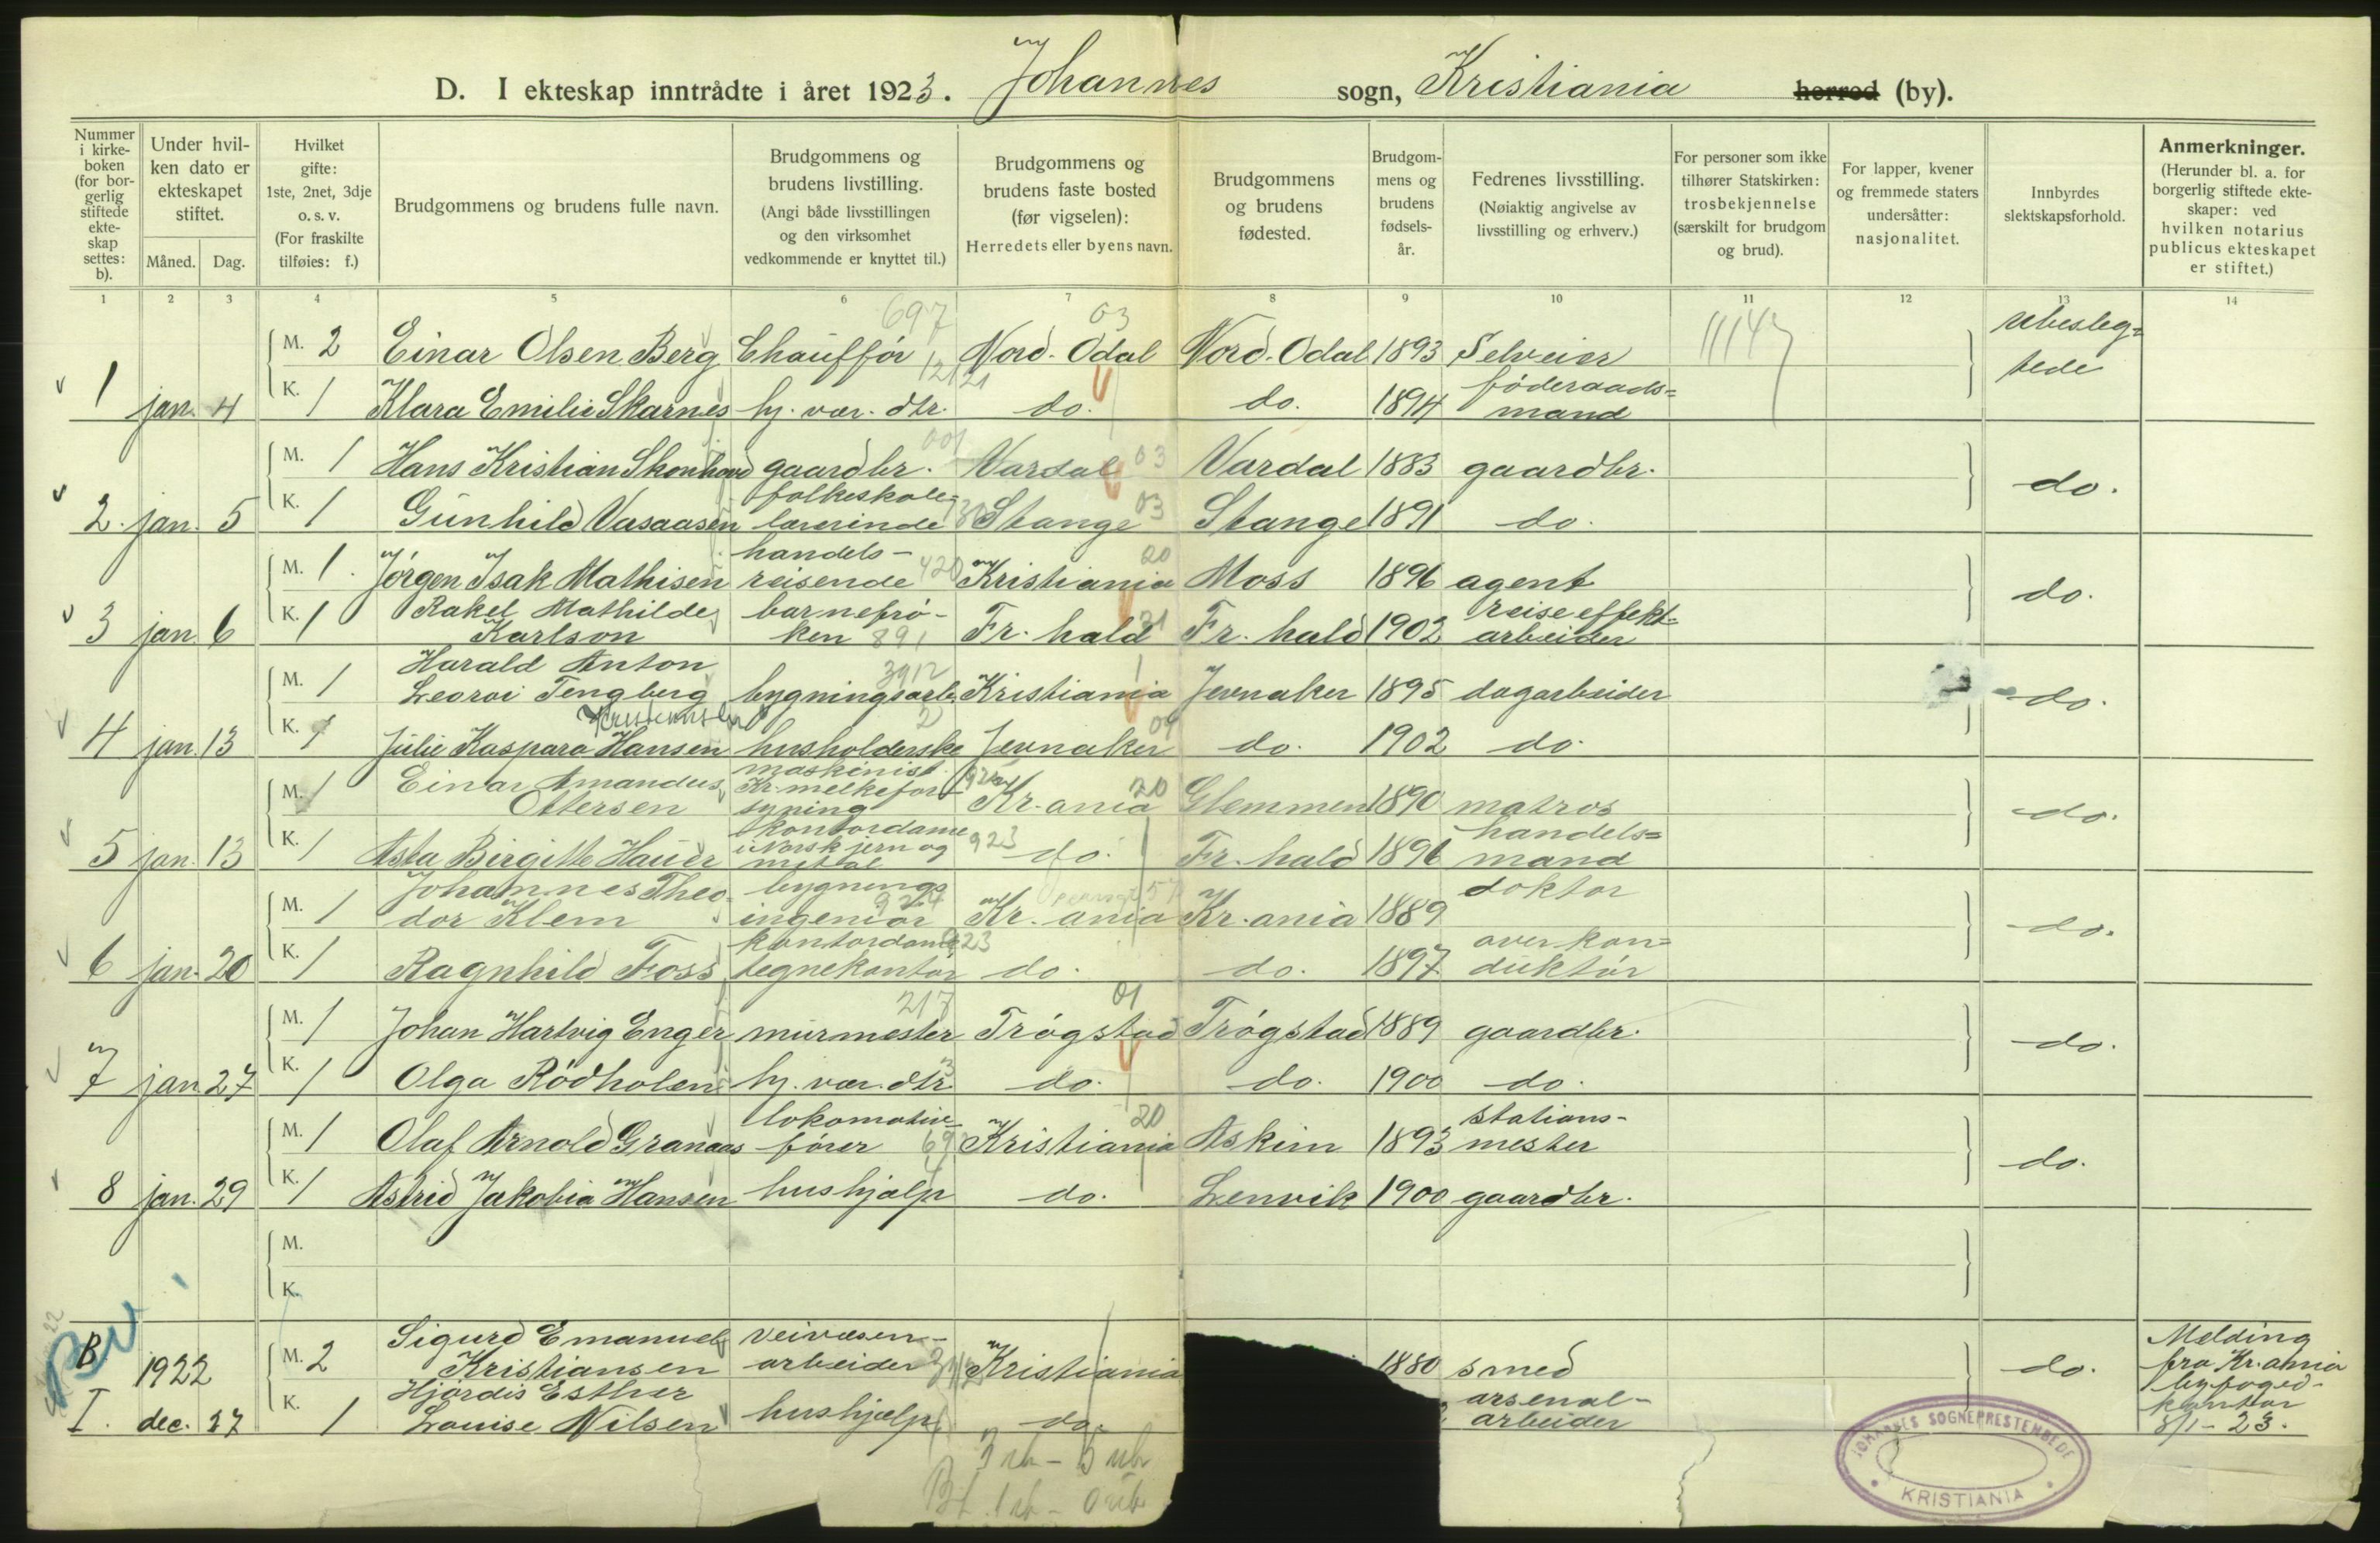 D. I ekteskap inntrådte i året 1923. Johannes sogn, Kristiania herred (by).
Nummer i kirkeboken (for borgerlig stiftede ekteskap settes: b).
Under hvilken dato er ekteskapet stiftet.
Måned. Dag.
Hvilket gifte: 1ste, 2net, 3dje o. s. v. (For fraskilte tilføies: f.)
Brudgommens og brudens fulle navn.
Brudgommens og brudens livstilling. (Angi både livsstillingen og den virksomhet vedkommende er knyttet til.)
Brudgommens og brudens faste bosted (før vigselen): Herredets eller byens navn.
Brudgommens og brudens fødested.
Brudgommens og brudens fødselsår.
Fedrenes livsstilling. (Nøiaktig angivelse av livsstilling og erhverv.)
For personer som ikke tilhører Statskirken: trosbekjennelse (særskilt for brudgom og brud).
For lapper, kvener og fremmede staters undersåtter: nasjonalitet.
Innbyrdes slektskapsforhold.
Anmerkninger. (Herunder bl. a. for borgerlig stiftede ekteskaper: ved hvilken notarius publicus ekteskapet er stiftet.)
1 2 3 4 5 6 7 8 9 10 11 12 13 14
697 03
M. 2 Einar Olsen Berg Chauffør Nord-Odal Nord-Odal 1893 Selveier ubesleg=
tede
1 jan. 4 K. 1 Klara Emilie Skarnes hj. vær. dtr. do. do. 1894 føderaads=
mand
M. 1 Hans Kristian Skonhovd gaardbr. Vardal 03 Vardal 1883 gaardbr.
do.
2. jan. 5 K. 1 Gunhild Vasaasen folkeskole=
lærerinde Stange 03 Stange 1891 do.
M. 1. Jørgen Isak Mathisen handels-
reisende 420 Kristiania 20 Moss 1896 agent
do.
3 jan. 6 K. 1 Rakel Mathilde
Karlson barnefrø-
ken 891 Fr. hald Fr. hald 1902 reiseeffekt-
arbeider
M. 1 Harald Anton
Leoroi Tengberg bygningsarb. Kristiania Jevnaker 1895 dagarbeider
do.
4 jan. 13 K. 1 Julie Kaspara Hansen husholderske Jevnaker do. 1902 do.
M. 1 Einar Amandus
Ottersen maskinist
Kr. melkefor-
syning Kr.ania 20 Glemmen 1890 matros
do.
5 jan. 13 K. 1 Asta Birgitte Hauer kontordame
i Norsk jern og
metal 923 do. Fr. hald 1896 handels=
mand
M. 1 Johannes Theo-
dor Klem bygnings
ingeniør 924 Kr.ania Kr.ania 1889 doktor
do.
6 jan. 20 K. 1 Ragnhild Foss kontordame
tegnekontor do. do. 1897 overkon=
duktør
217 01
M. 1 Johan Hartvig Enger murmester Trøgstad Trøgstad 1889 gaardbr.
do.
7 jan. 27 K. 1 Olga Rødholen hj. vær. dtr. do. do. 1900 do.
M. 1 Olaf Arnold Granaas lokomotiv-
fører Kristiania 20 Askim 1893 stations-
mester
do.
8 jan. 29 K. 1 Astrid Jakobia Hansen hushjælp do. Lenvik 1900 gaardbr.
M.
K.
B 1922 M. 2 Sigurd Emanuel
Kristiansen veivæsen-
arbeider Kristiania 1880 smed do.
I. dec. 27 K. 1 Hjørdis Esther
Louise Nilsen hushjælp do. arsenal-
arbeider
Melding
fra Kr.ania
byfoged-
kontor
8/1-23.
JOHANNES SOGNEPRESTEMBEDE
KRISTIANIA